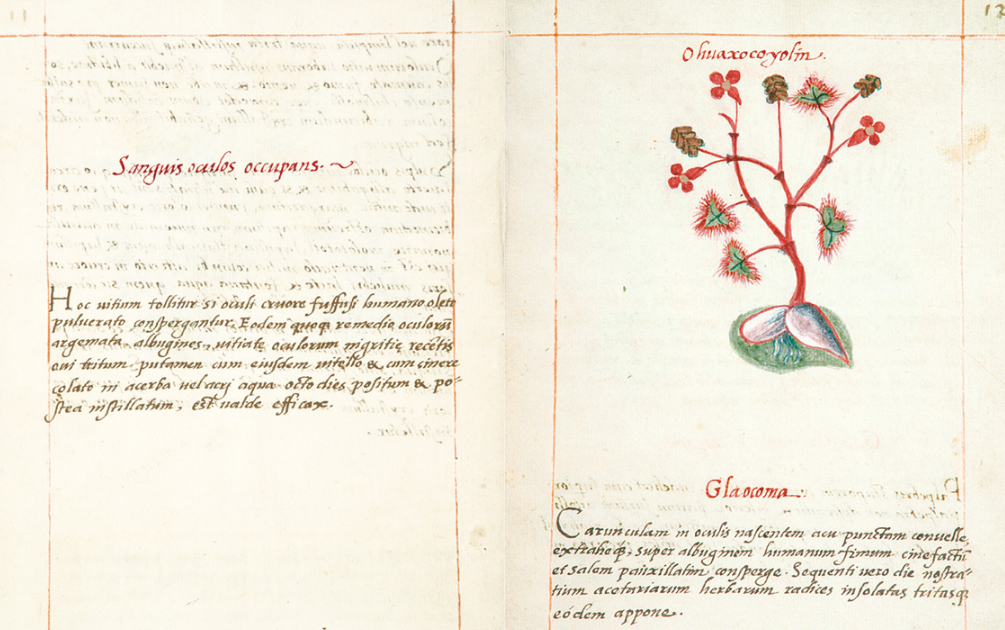 11
Sanguis oculos occupans.
Hoc uitium tollitur si oculi cruore suffusi humano oleto
puluerato conspergantur. Eodem quoq; remedio oculorū
argemata, albugines, uitiatæ oculorum nigritiæ recētis
oui tritum putamen cum eiusdem uitello & cum cinere
colato in acerba uel acri aqua octo dies positum & po=
stea instillatum, est ualde efficax.
12
Ohuaxocoyolin.
Glaocoma
Carunculam in oculis nascentem acu punctam conuelle,
extrahe q;, super albuginem humanum fimum cinefactū
et salem pauxillatim consperge. Sequenti uero die nostra=
tium acetariarum herbarum radices insolatas tritasq;
eódem appone.